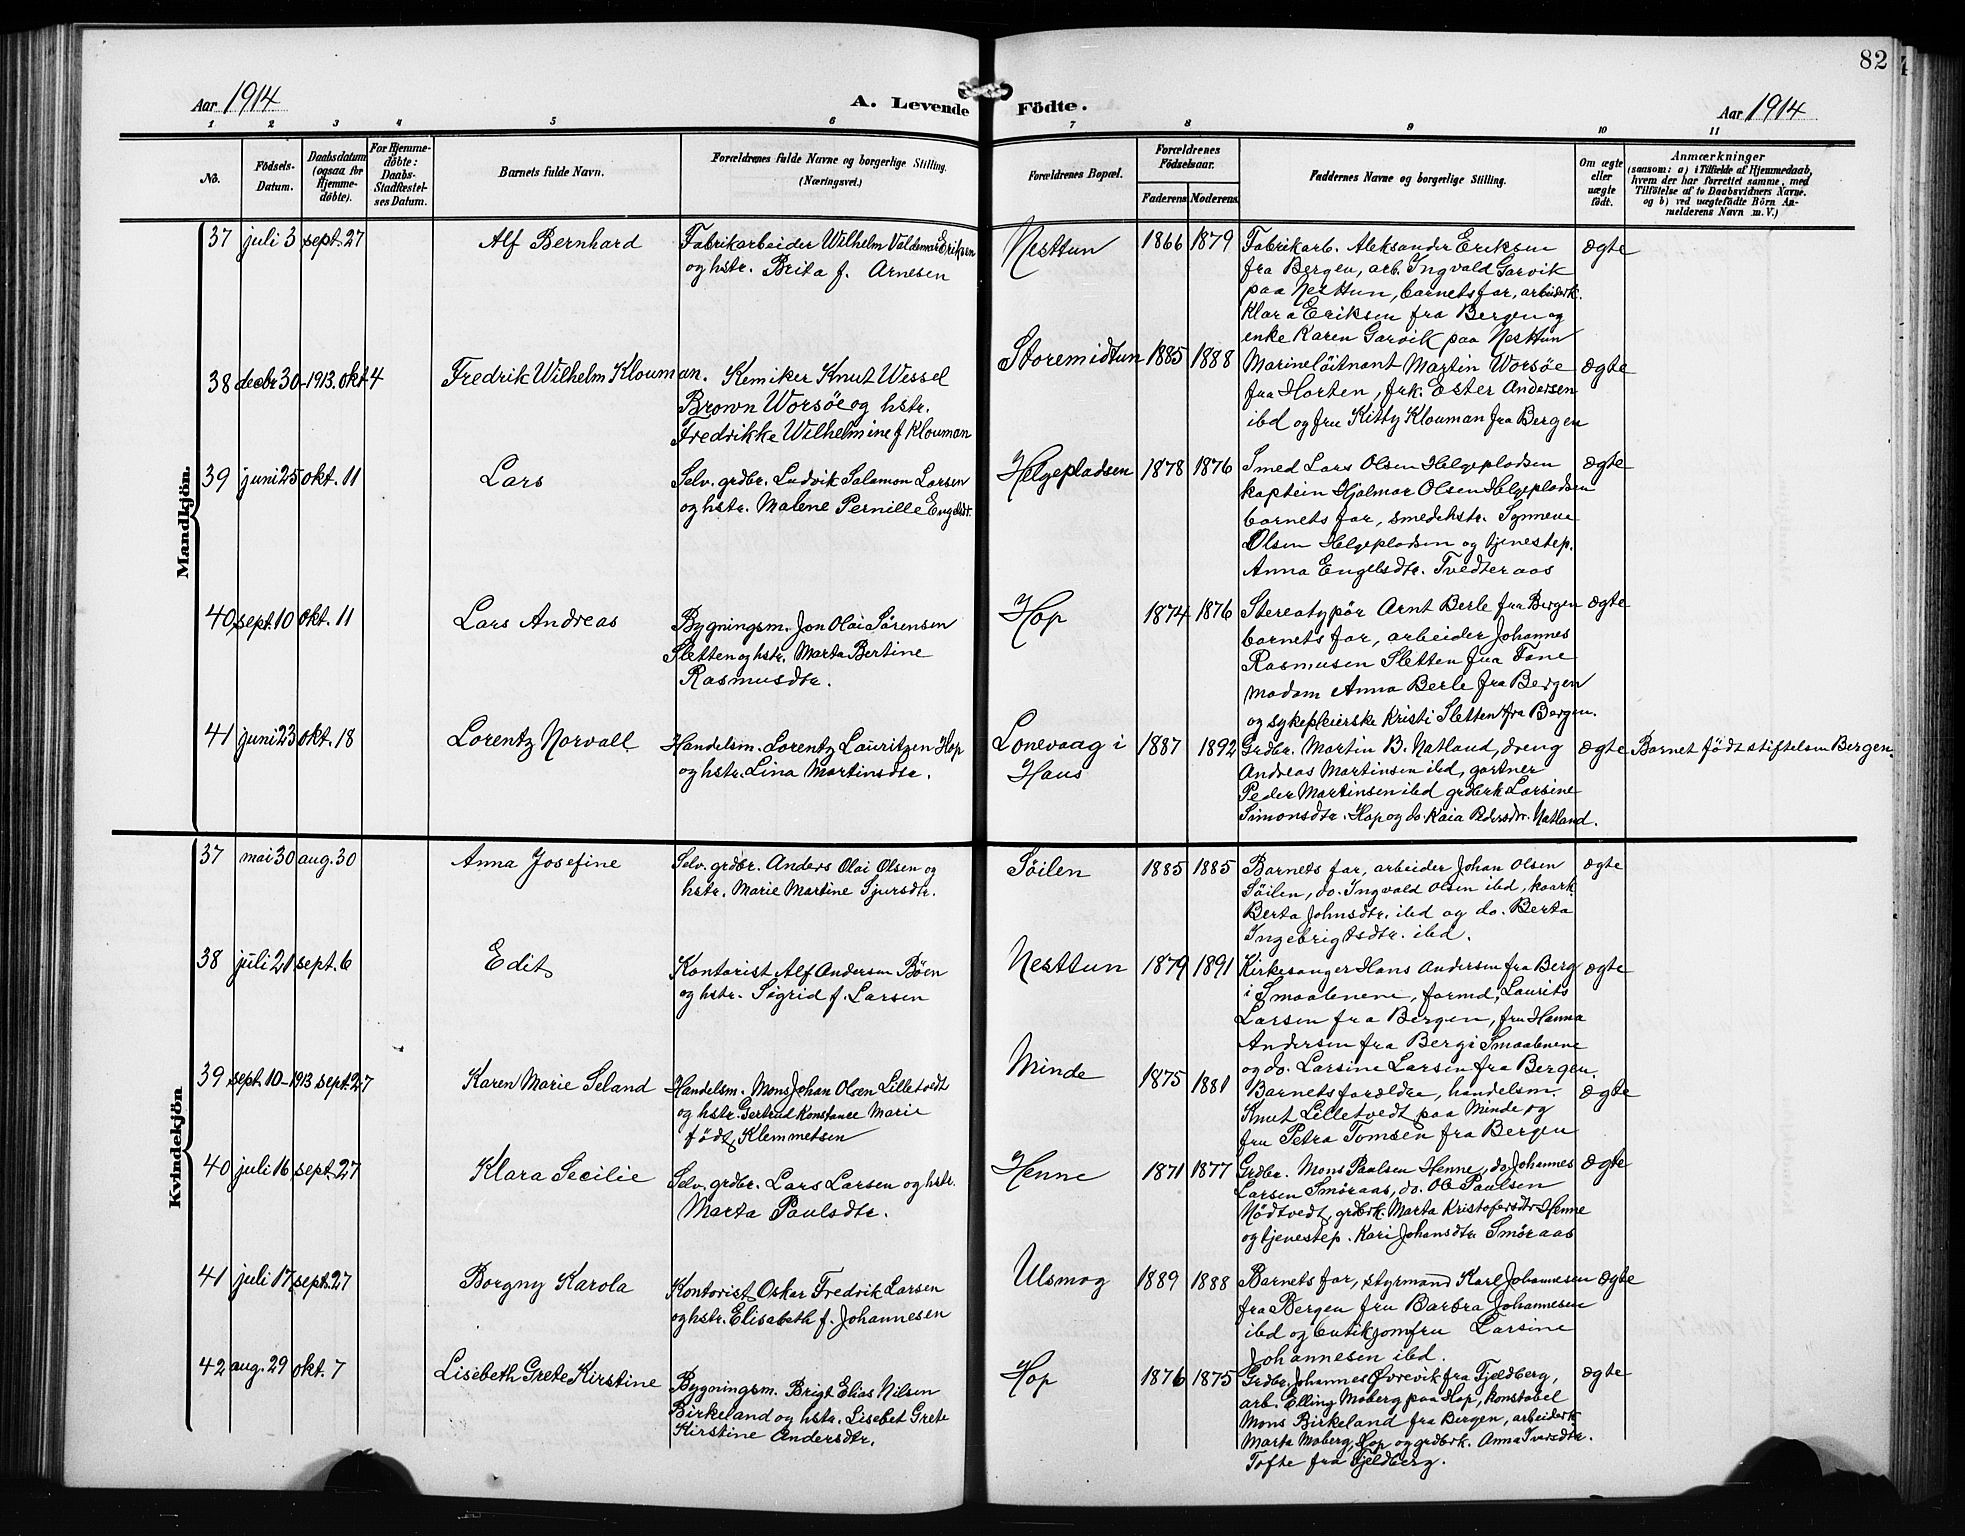 82
Aar 1914
A. Levende
Födte.
Aar 1914
1 2 3 4 5 6 7 8 9 10 11
No.
Födsels-
Datum.
Daabsdatum
(ogsaa for
Hjemme-
döbte).
For Hjemme-
döbte:
Daabs-
Stadfæstel-
ses Datum.
Barnets fulde Navn.
Forældrenes fulde Navne og borgerlige Stilling.
(Næringsvei.)
Forældrenes Bopæl.
Forældrenes
Födselsaar.
Faderens Moderens.
Faddernes Navne og borgerlige Stilling.
Om ægte
eller
uægte
födt.
Anmærkninger
(saasom: a) i Tilfælde af Hjemmedaab,
hvem der har forrettet samme, med
Tilföielse af to Daabsvidners Navne.
og b) ved uægtefödte Börn An-
melderens Navn m. V.)
Mandkjön.
37 juli 3 sept. 27 Alf Bernhard
Fabrikarbeider Wilhelm Valdemar Eriksen
og hstr. Brita f. Arnesen
Nesttun 1866 1879
Fabrikarb. Aleksander Eriksen
fra Bergen, arb. Ingvald Garvik
paa Nesttun, barnets far, arbeiderk.
Klara Eriksen fra Bergen og
enke Karen Garvik paa Nesttun
ægte
38 decbr 30-1913. okt. 4 Fredrik Wilhelm Klouman.
Kemiker Knut Wessel
Brown Worsöe og hstr.
Fredrikke Wilhelmine f Klouman
Storemidtun 1885 1888
Marinelöitnant Martin Worsöe
fra Horten, frk. Ester Andersen
ibd og fru Kitty Klouman fra Bergen
ægte
39 juni 25 okt. 11 Lars
Selv. grdbr. Ludvik Salamon Larsen
og hstr. Malene Pernille Engelsdt.
Helgepladsen 1878 1876
Smed Lars Olsen Helgepladsen
kaptein Hjalmar Olsen Helgepladsen
barnets far, smedehstr. Synneve
Olsen Helgepladsen og tjenestep.
Anna Engelsdtr. Tvedteraas
ægte
40 sept. 10 okt. 11 Lars Andreas
Bygningsm. Jon Olai Sörensen
Sletten og hstr. Marta Bertine
Rasmusdtr.
Hop 1874 1876
Stereatypör Arnt Berle fra Bergen
barnets far, arbeider Johannes
Rasmusen Sletten fra Fane
madam Anna Berle fra Bergen
og sykepleierske Kristi Sletten fra Bergen.
ægte
41 juni 23 okt. 18 Lorentz Norvall
Handelsm. Lorentz Lauritzen Hop
og hstr. Lina Martinsdtr.
Lonevaag i
Haus
1887 1892
Grdbr. Martin B. Natland, dreng
Andreas Martinsen ibd, gartner
Peder Martinsen ibd grdbrk Larsine
Simonsdtr. Hop og do. Kaia Pedersdtr. Natland.
ægte
Barnet födt stiftelsen Bergen.
Kvindekjön
37 mai 30 aug. 30 Anna Josefine
Selv. grdbr. Anders Olai Olsen og
hstr. Marie Martine Sjursdtr.
Söilen 1885 1885
Barnets far, arbeider Johan Olsen
Söilen, do. Ingvald Olsen ibd, kaark.
Berta Johnsdtr. ibd og do. Berta
Ingebrigtsdtr. ibd.
ægte
38 juli 21 sept. 6 Edit
Kontorist Alf Andersen Böen
og hstr. Sigrid f. Larsen
Nesttun 1879 1891
Kirkesanger Hans Andersen fra Berg
i Smaalenene, formd, Laurits
Larsen fra Bergen, fru Hanna
Andersen fra Berg i Smaalenene
og do. Larsine Larsen fra Bergen.
ægte
39 sept. 10-1913 sept. 27 Karen Marie Seland
Handelsm. Mons Johan Olsen Lilletvedt
og hstr. Gertrud Konstance Marie
födt Klemmetsen
Minde 1875 1881
Barnets forældre, handelsm.
Knut Lilletvedt paa Minde og
fru Petra Tomsen fra Bergen
ægte
40 juli 16 sept. 27 Klara Secilie
Selv. grdbr. Lars Larsen og hstr.
Marta Paulsdtr.
Henne 1871 1877
Grdbr. Mons Paulsen Henne, do Johannes
Larsen Smöraas, do. Ole Paulsen
Nödtvedt, grdbrk. Marta Kristofersdtr Henne
og tjenestep. Kari Johansdtr Smöraas
ægte
41 juli 17 sept. 27 Borgny Karola
Kontorist Oskar Fredrik Larsen
og hstr. Elisabeth f. Johannesen
Ulsmog 1889 1888
Barnets far, styrmand Karl Johannesen
fra Bergen fru Barbra Johannesen
ibd og butikjomfru Larsine
Johannesen ibd.
ægte
42 aug. 29 okt. 7 Lisebeth Grete Kirstine
Bygningsm. Brigt Elias Nilsen
Birkeland og hstr. Lisebet Grete
Kirstine Andersdtr.
Hop 1876 1875
Grdbr. Johannes Övrevik fra Fjeldberg,
arb. Elling Moberg paa Hop, konstabel
Mons Birkeland fra Bergen, arbeiderk.
Marta Moberg, Hop og grdbrk. Anna Iversdtr.
Tofte fra Fjeldberg.
ægte